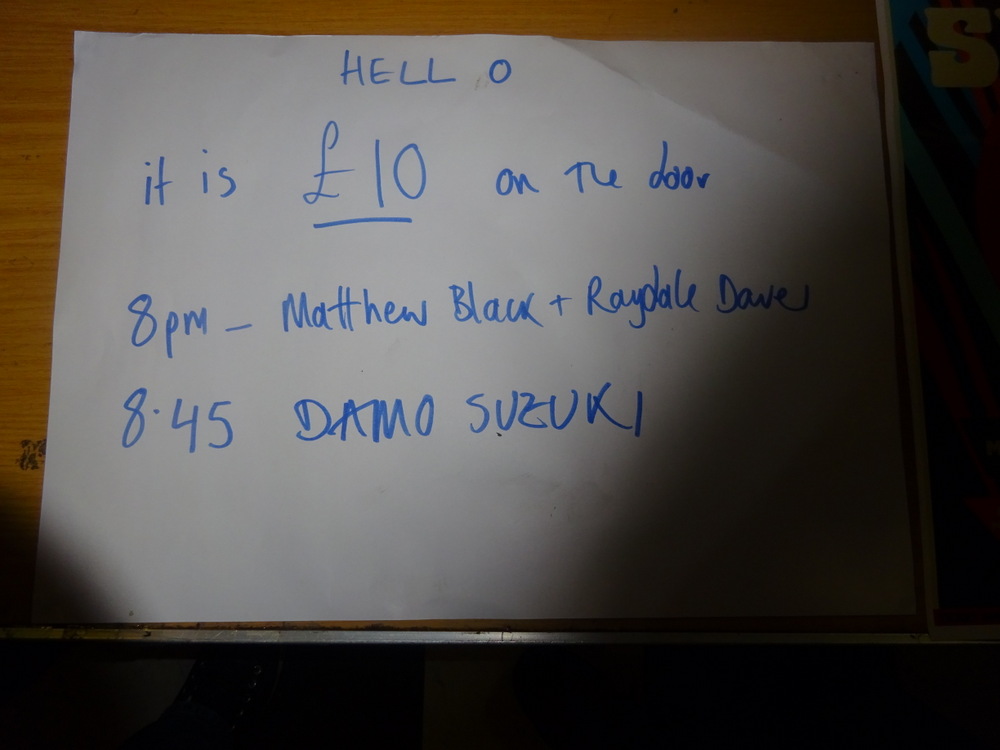 HELLO
it is £10 on the door
8pm - Matthew Black + Raydale Dave
8.45 DAMO SUZUKI
S